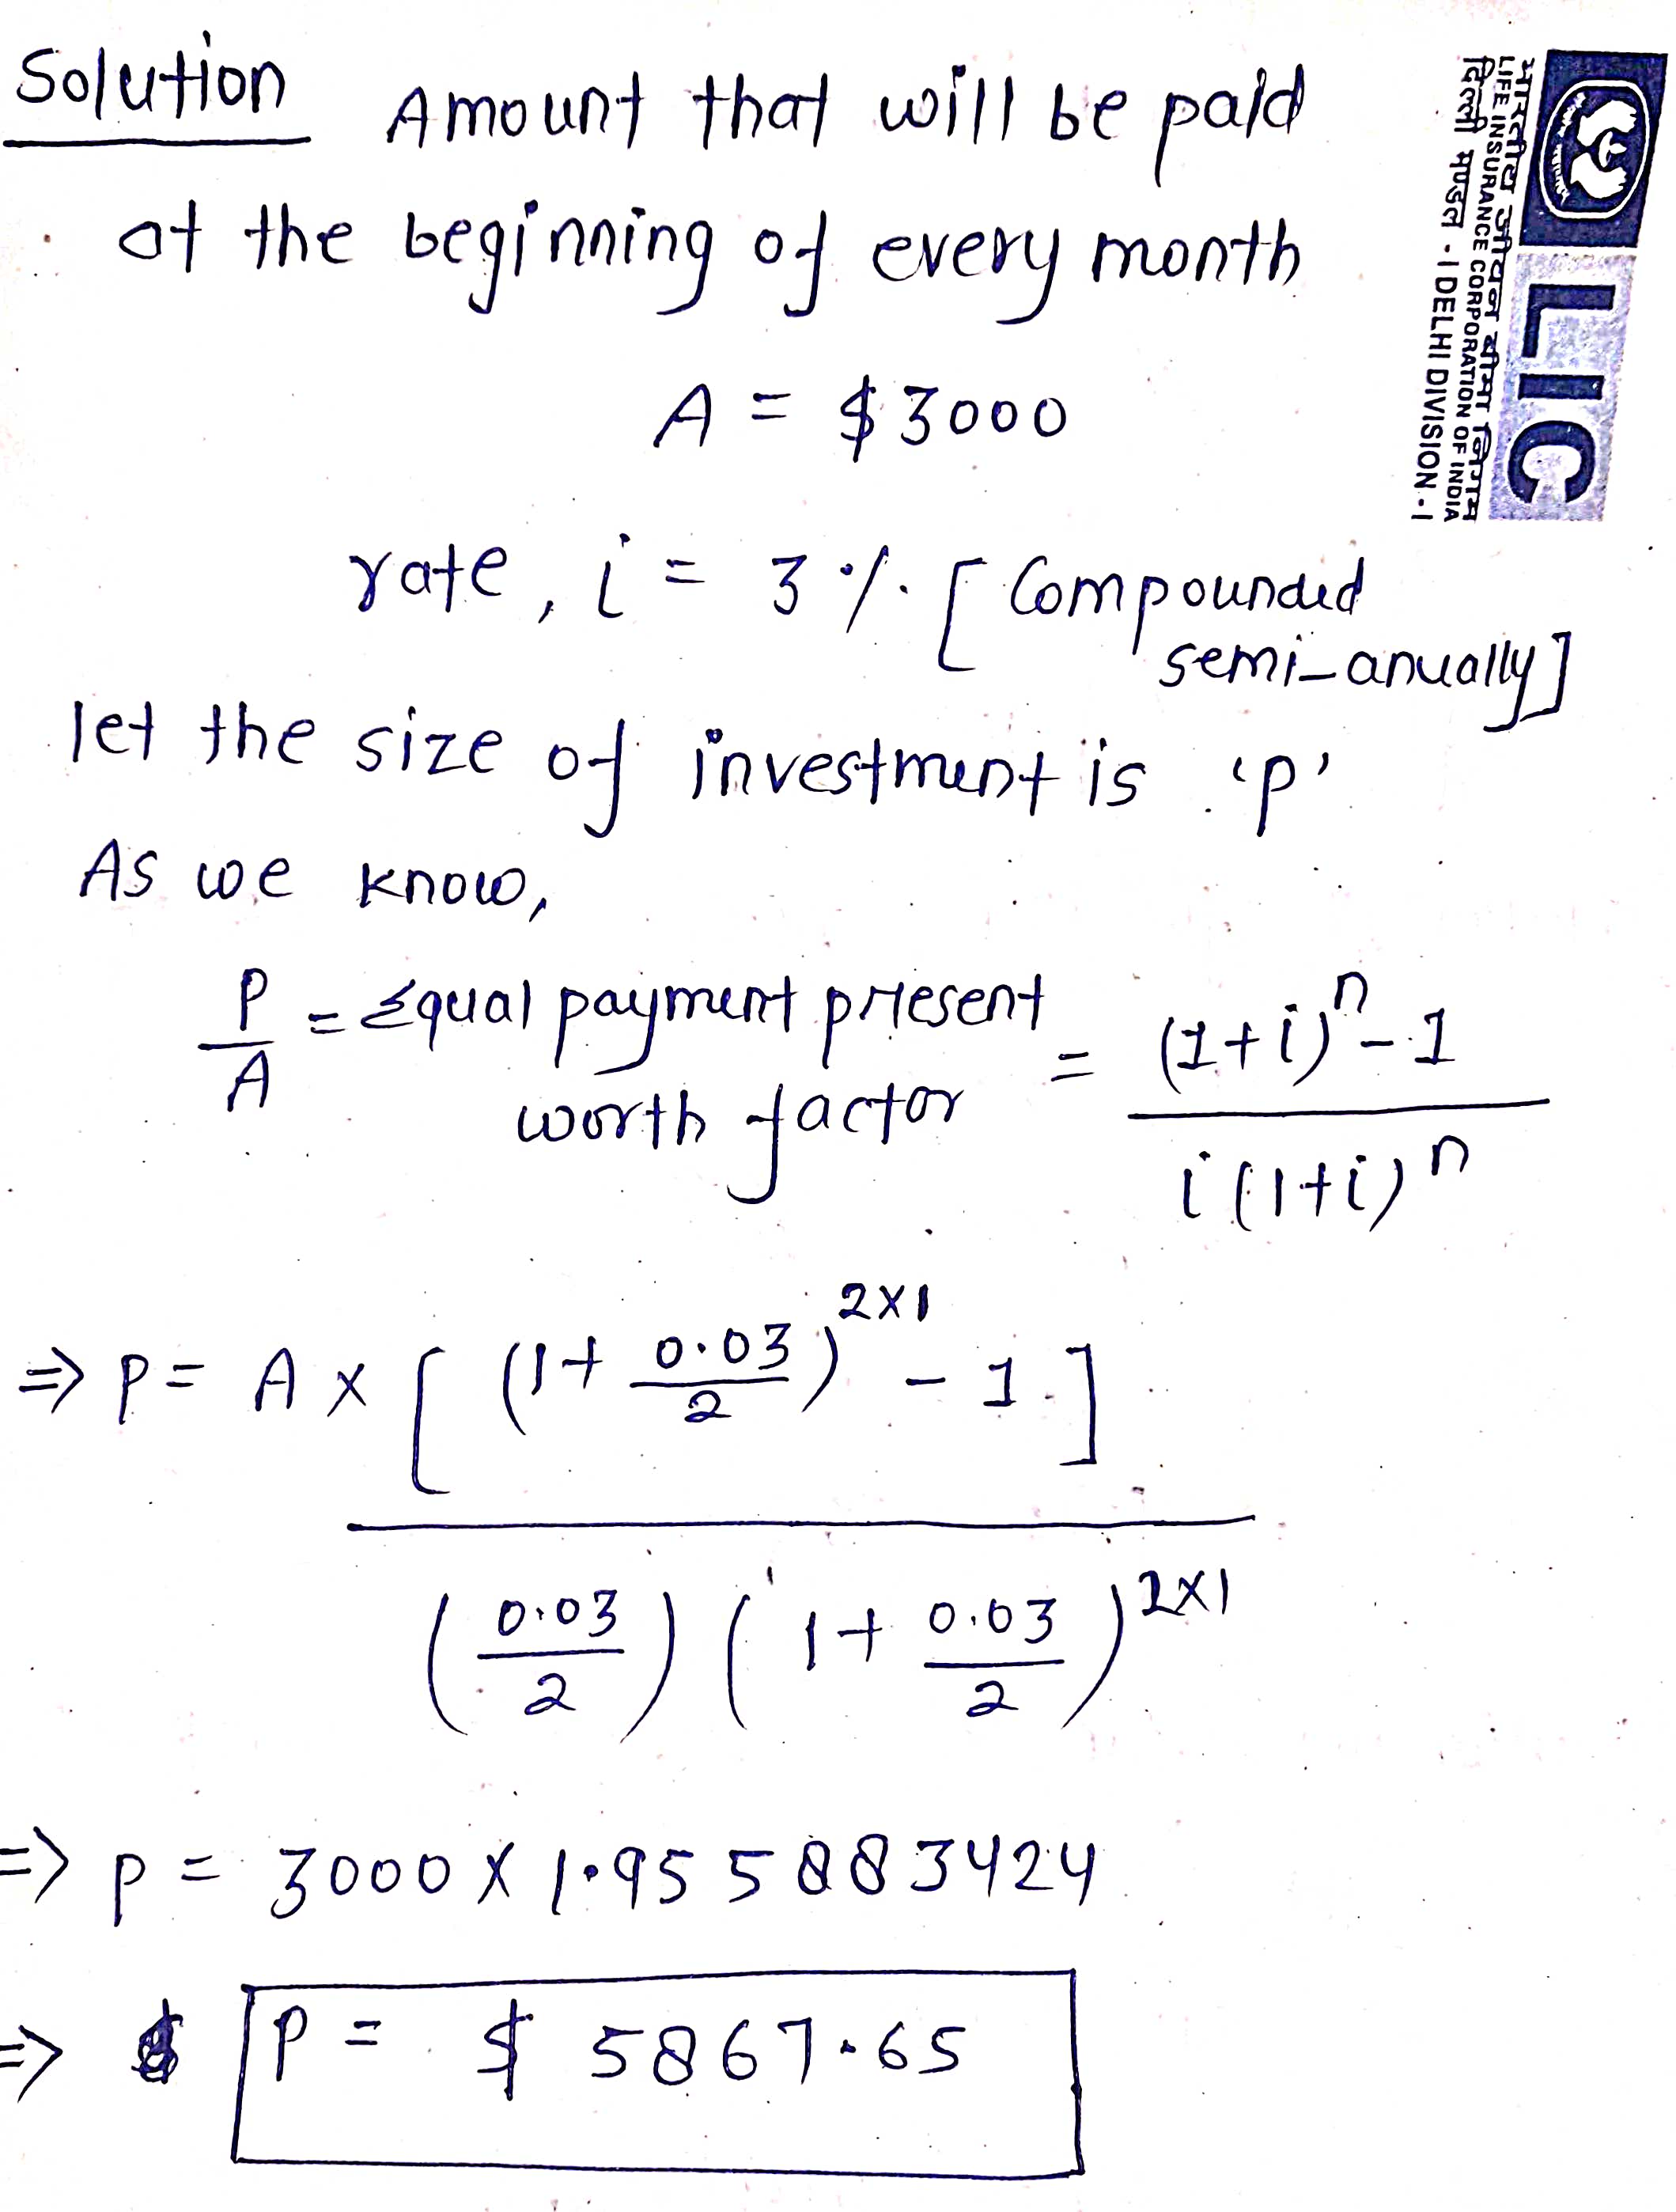 Solution Amount that will be paid
at the beginning of every month
A = $ 3000
rate, i = 3 %. [ Compounded
semi-anually]
let the size of investment is 'p'
As we know,
P/A = Equal payment present worth factor = (1+i)^n - 1 / i(1+i)^n
=> P = A x [ (1 + 0.03/2)^2x1 - 1 ]
(0.03/2) (1 + 0.03/2)^2x1
=> p = 3000 x 1.955883424
=> P = $ 5867.65
LIC
भारतीय जीवन बीमा निगम
LIFE INSURANCE CORPORATION OF INDIA
दिल्ली मण्डल - I DELHI DIVISION - I